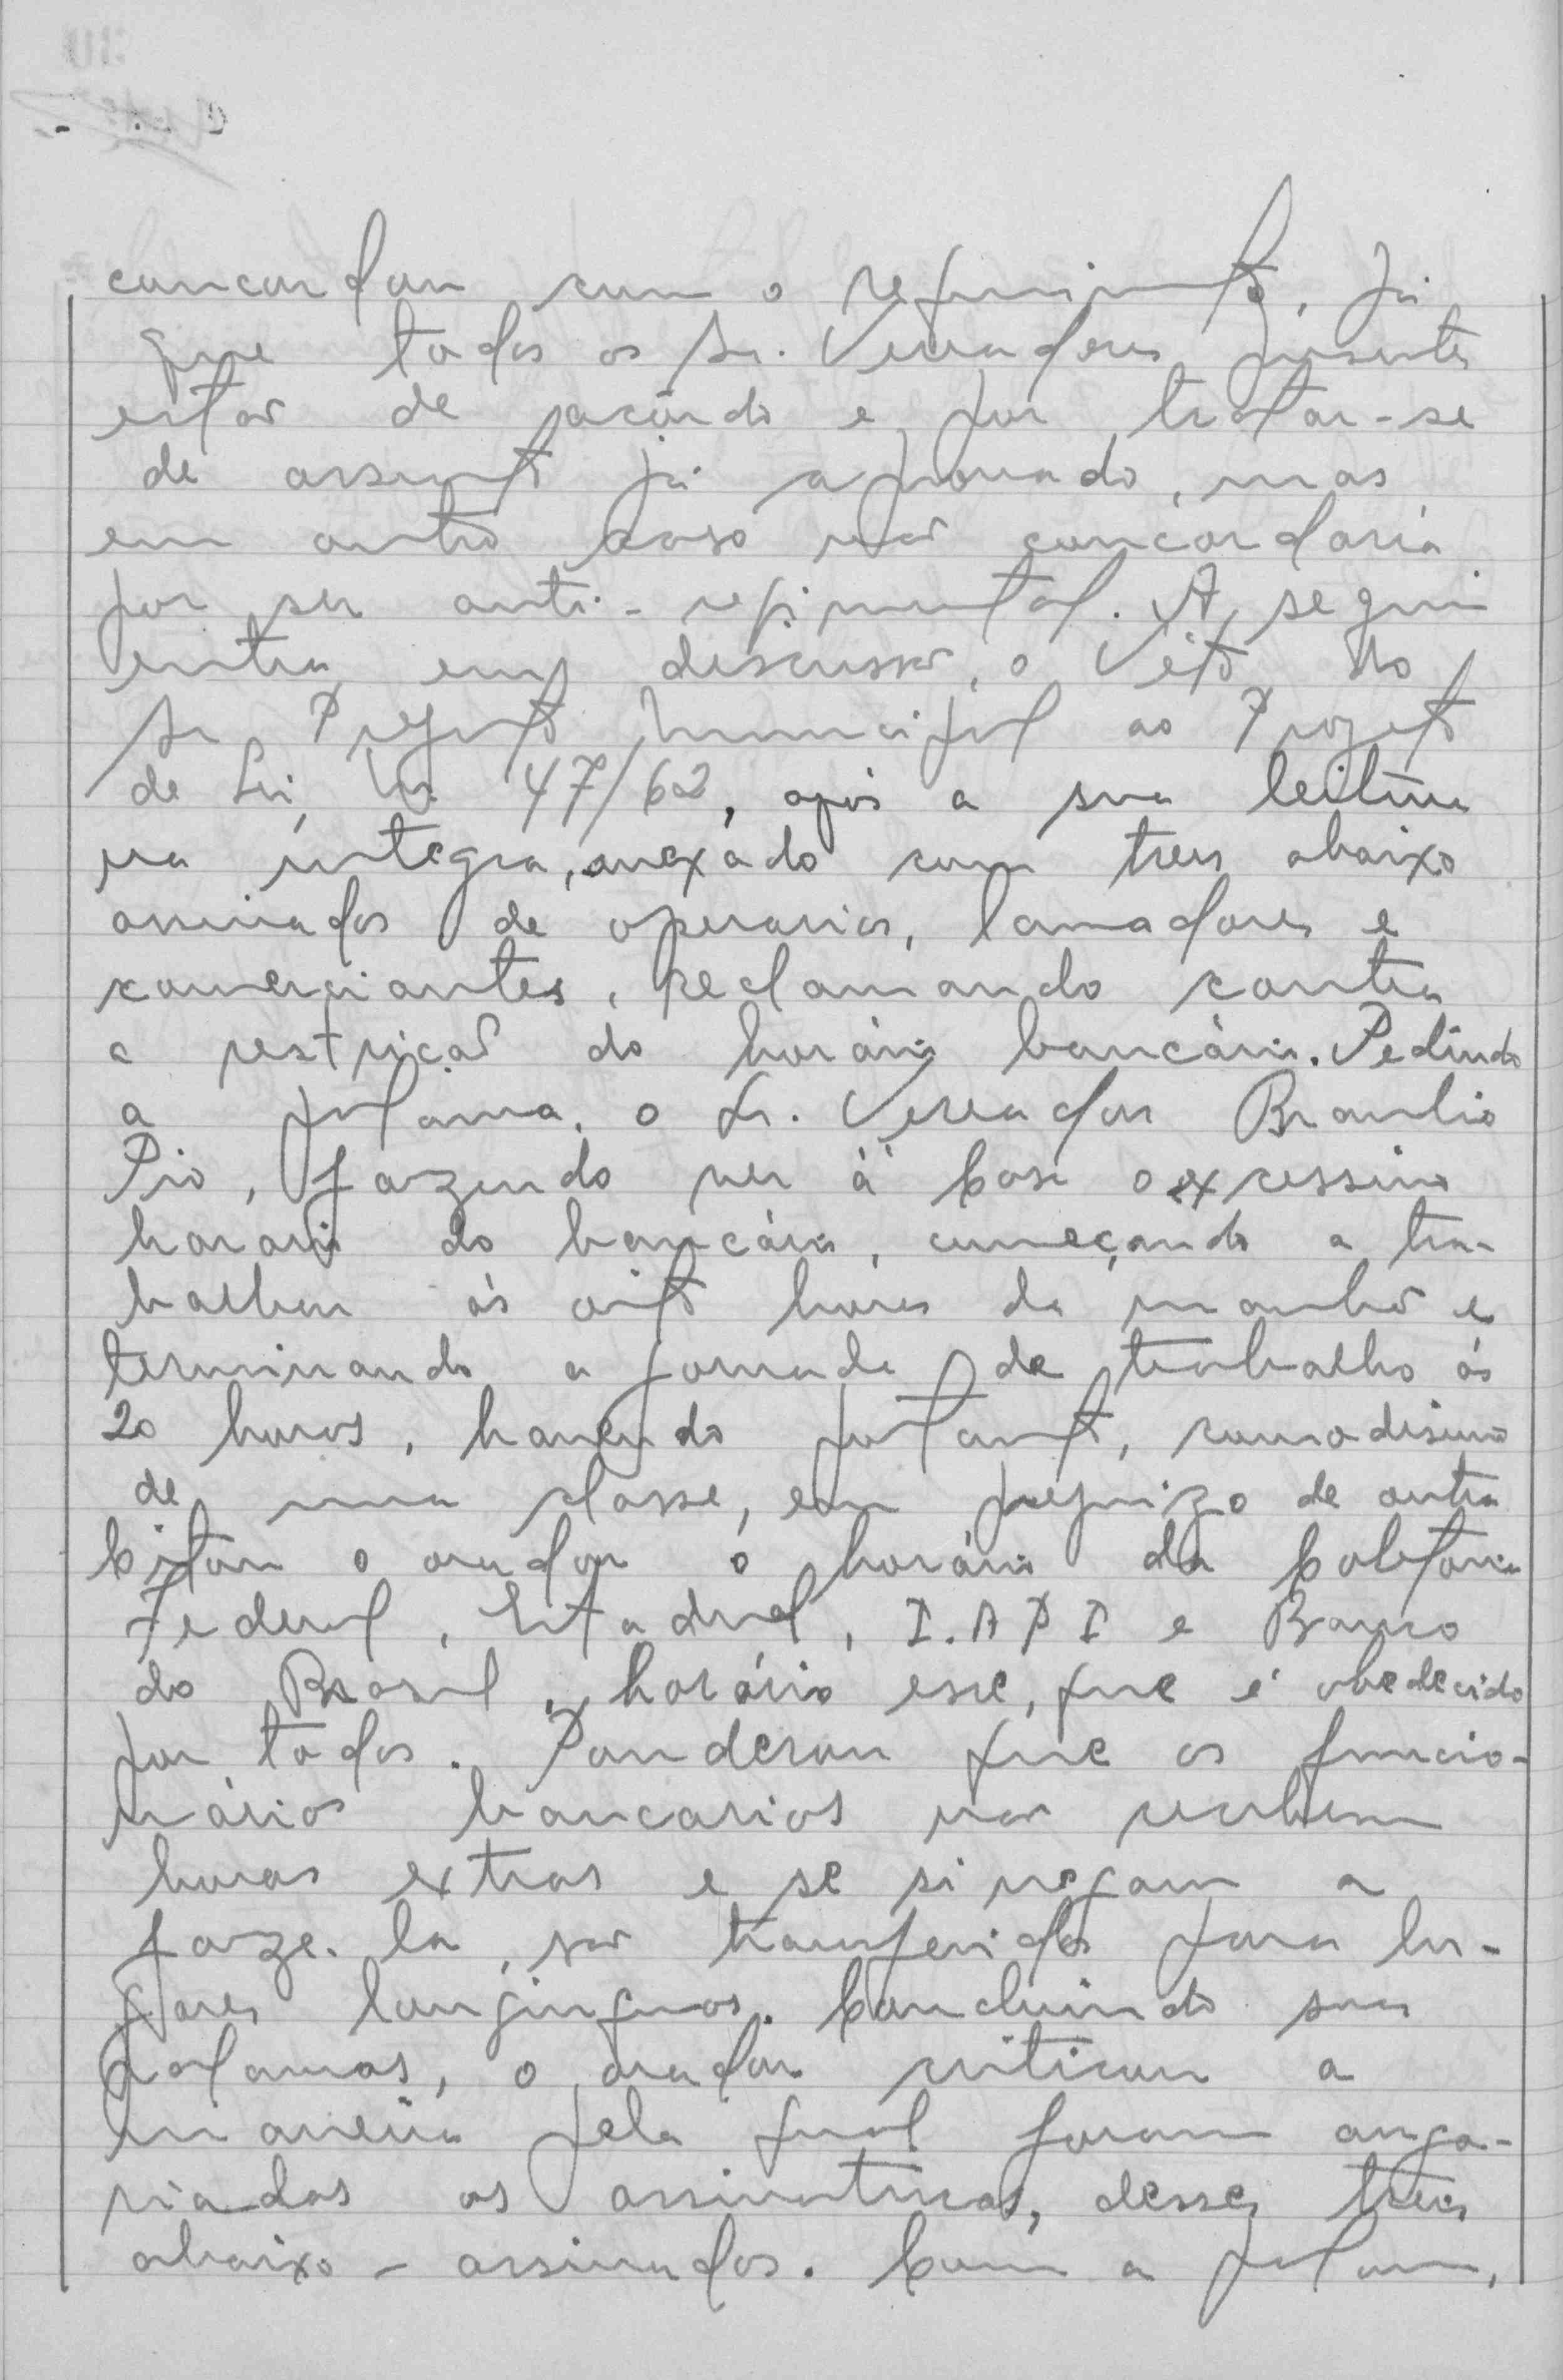 concordou com o requerimento, já
que todos os Sr. Vereadores presentes
estão de acôrdo e por tratar-se
de assunto já aprovado, mas
em outro caso não concordaria
por ser anti-regimental. A seguir
entra em discussão, o Véto do
Sr. Prefeito Municipal ao Projeto
de Lei Nr. 47/62, após a sua leitura
na integra, anexado com tres abaixo
assinados de operarios, lavradores e
comerciantes, reclamando contra
a restrição do horário bancário. Pedindo
a palavra, o Sr. Vereador Braulio
Pio, fazendo ver à Casa o excessivo
horario do bancário, começando a tra-
balhar ás oito horas da manhã e
terminando a jornada de trabalho ás
20 horas, havendo portanto, comodismo
de uma classe, em prejuizo de outra
Citou o orador o horário da Coletoria
Federal, Estadual, I.A P I e Banco
do Brasil, horário esse, que é obedecido
por todos. Ponderou que os funcio-
nários bancarios não recebem
horas extras e se si negam a
faze-la, são transferidos para lu-
gares longinquos. Concluindo suas
palavras, o orador criticou a
maneira pela qual foram anga-
riadas as assinaturas, desses tres
abaixo-assinados. Com a palavra,